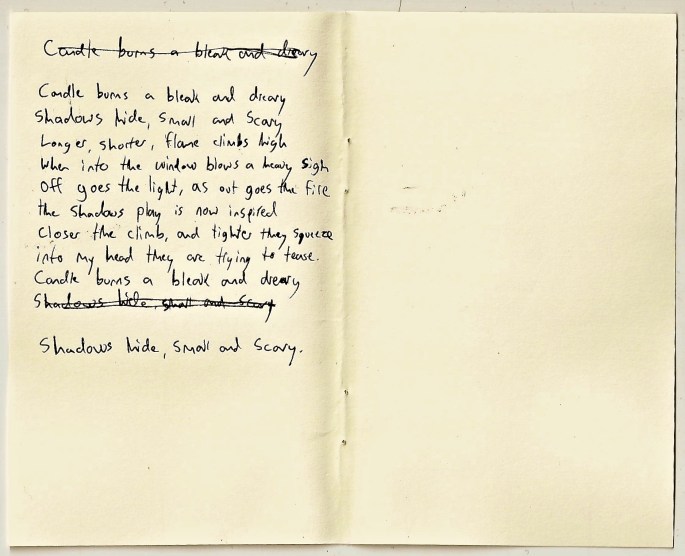 Candle burns a bleak and dreary
Candle burns a bleak and dreary
Shadows hide, small and scary
Longer, shorter, flame climbs high
When into the window blows a heavy sigh
Off goes the light, as out goes the fire
the shadows play is now inspired
Closer the climb, and tighter they squeeze
into my head they are trying to tease.
Candle burns a bleak and dreary
Shadows hide, small and scary
Shadows hide, small and scary.